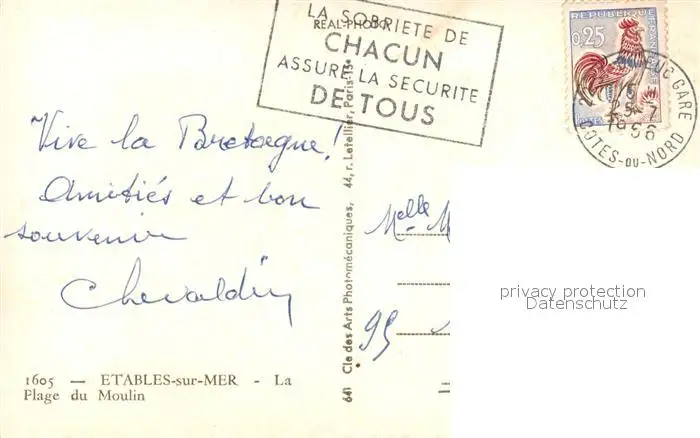 REAL-PHOTO
LA SOBRIETE DE
CHACUN
ASSURE LA SECURITE
DE TOUS
REPUBLIQUE FRANCAISE
0,25
GARE
25-7
COTES-DU-NORD
Vive la Bretagne!
Amitiés et bon
souvenir
Chevaldin
1605 — ETABLES-sur-MER - La
Plage du Moulin
641 Cie des Arts Photomécaniques, 44, r. Letellier, Paris-15e
Melle M
95
privacy protection
Datenschutz